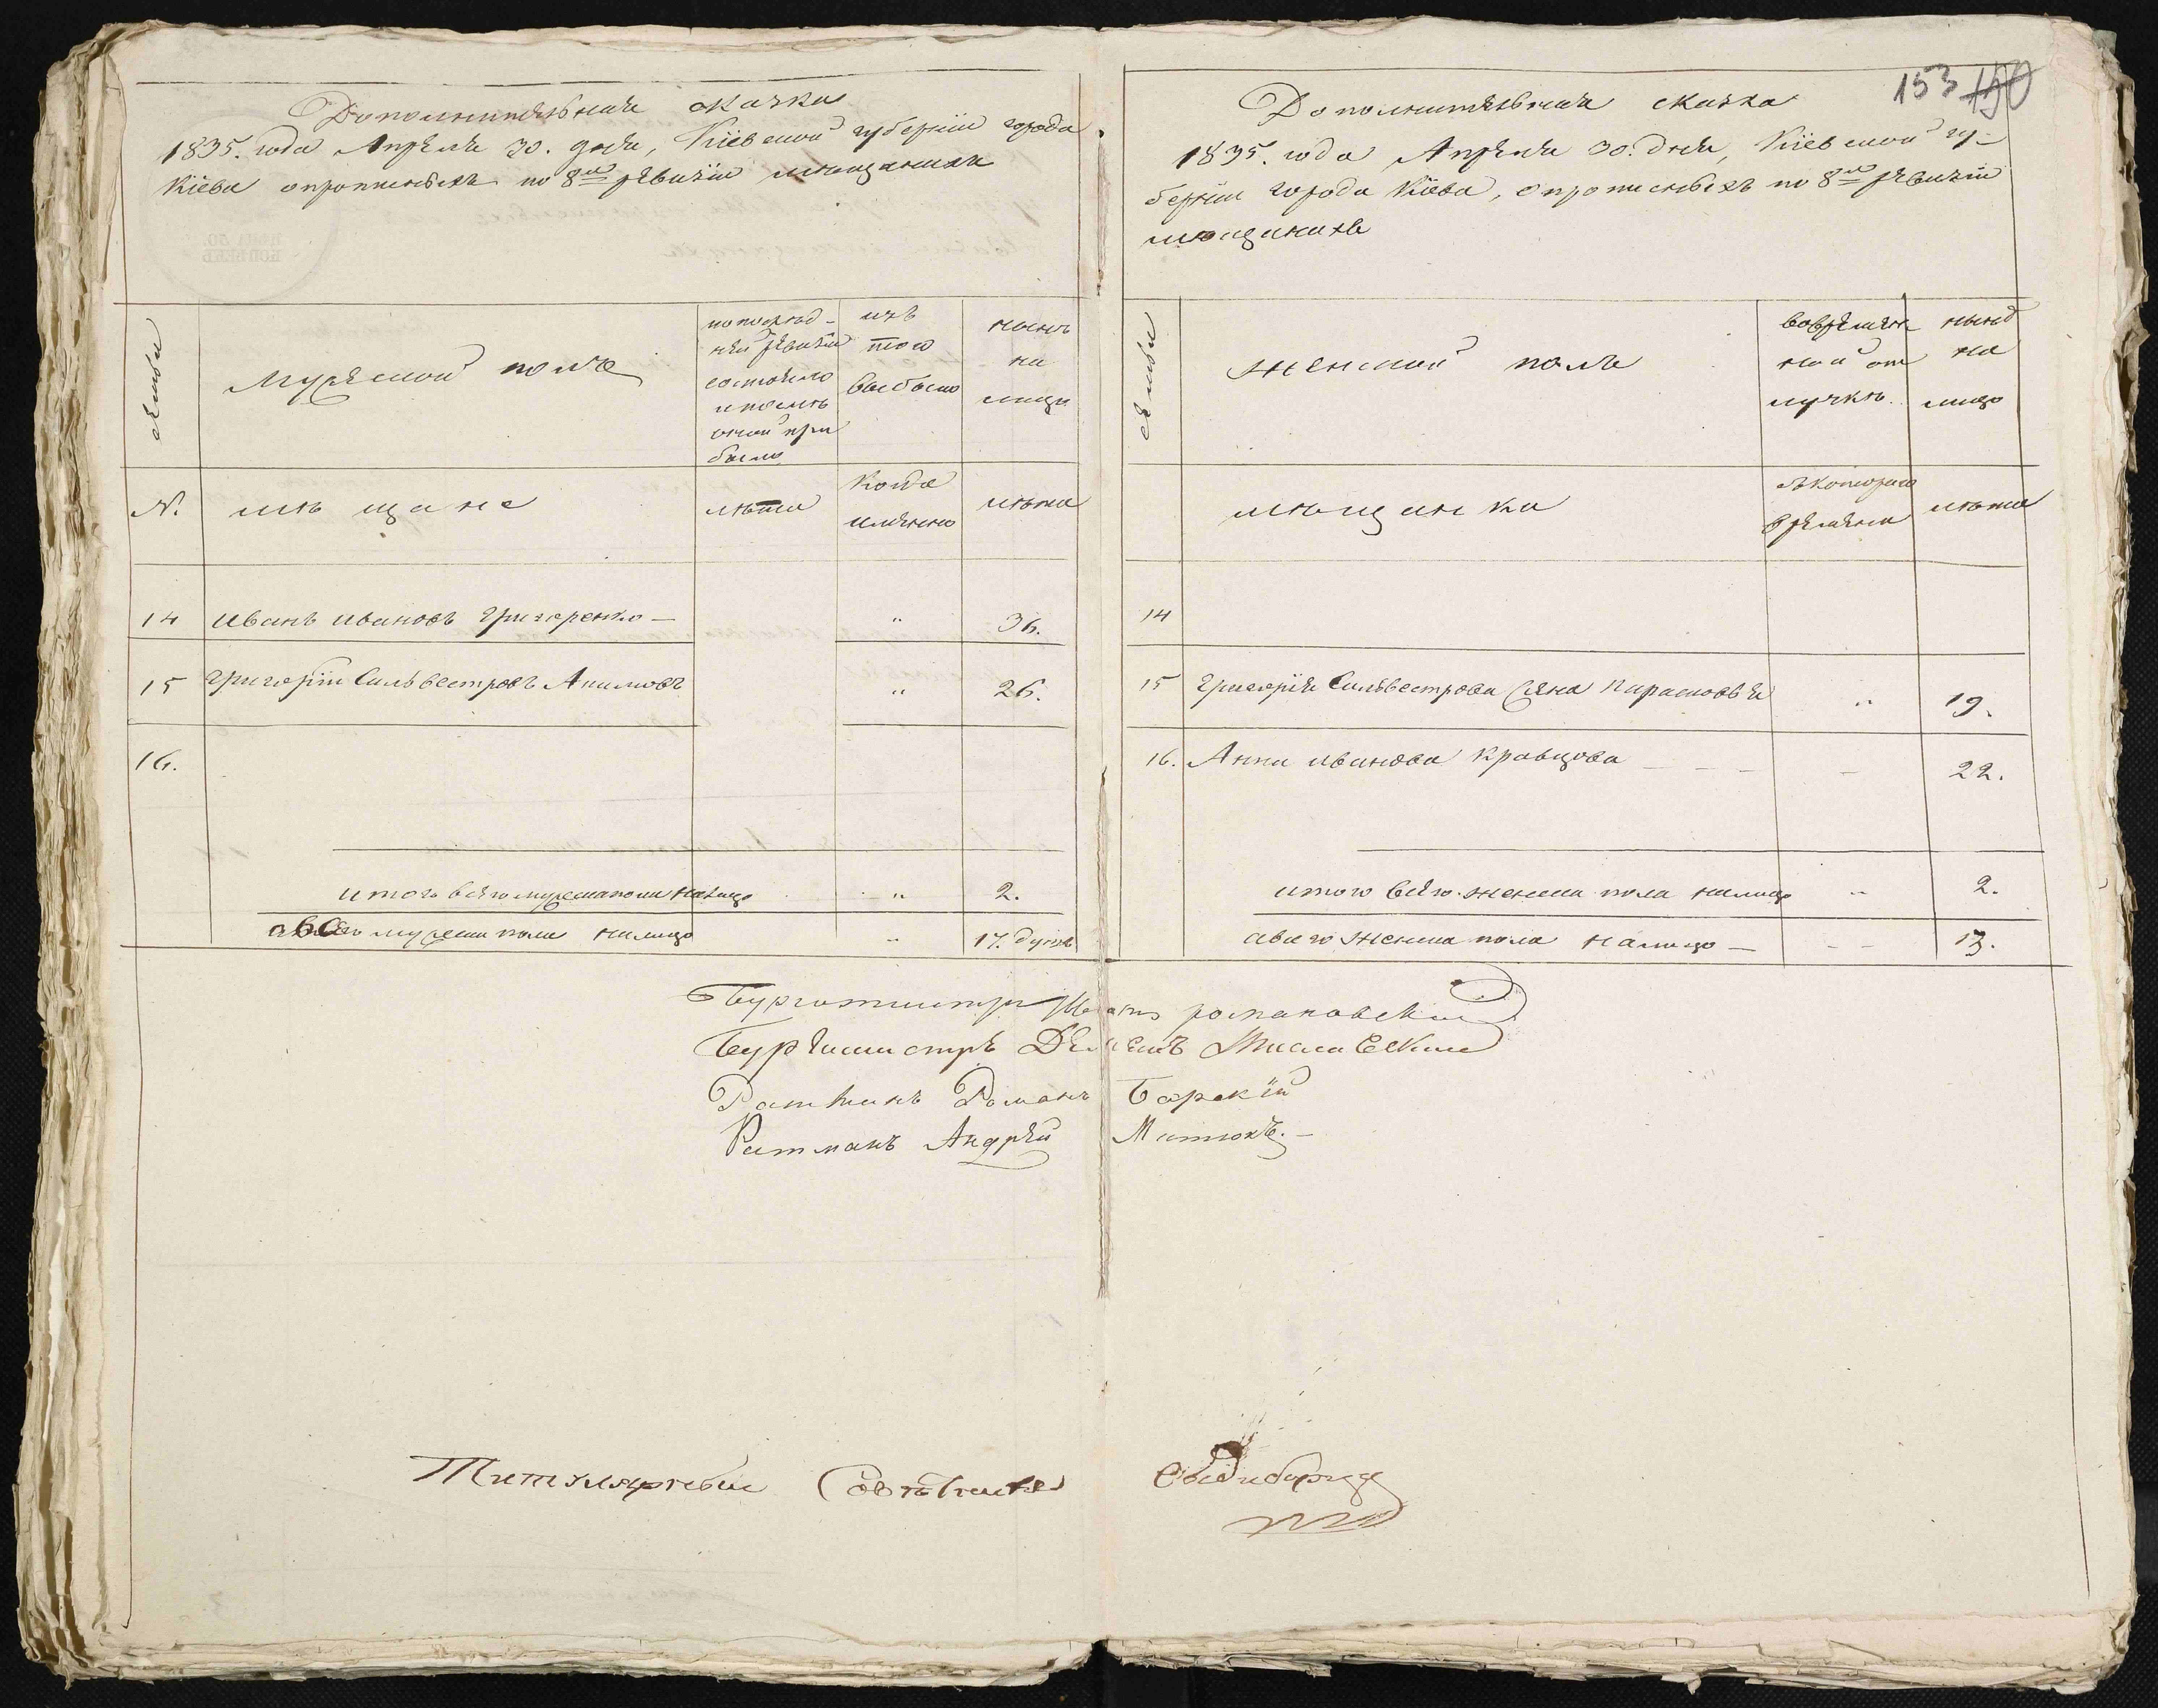 Дополнительная сказка
1835. года Апреля 30. дня, Кіевской губерніи города
Кіева опрописныхъ по 8й ревизіи мещанахъ
семьи
Мужеской полъ
по послед-
ней ревизіи
состояло
и после
оной при
было
изъ
того
выбыло
ныне
на
лицо
№.
мещане
лета
когда
именно
лета
14 Иванъ Ивановъ Григоренко — " 36.
15 Григорій Сильвестровъ Акимовъ " 26.
16.
итого всего мужеска пола налицо " 2.
а всего мужеска пола налицо " 17. душъ
153 150
Дополнительная сказка
1835. года Апреля 30. дня, Кіевской гу-
берніи города Кіева, опрописныхъ по 8й ревизіи
мещанахъ
семьи
женскій полъ
во времен
ной от
лучке.
ныне
на
лицо
мещанка
съ котораго
времени
лета
14
15 Григорія Сильвестрова жена Парасковья " 19.
16. Анна Иванова Кравцова — — — - 22.
итого всего женска пола налицо " 2.
а всего женска пола налицо — - - 13.
Бургомистръ
Бургмистръ
Ратманъ Романъ Барскій
Ратманъ Андрей Митюкъ. —
Титулярный Советникъ